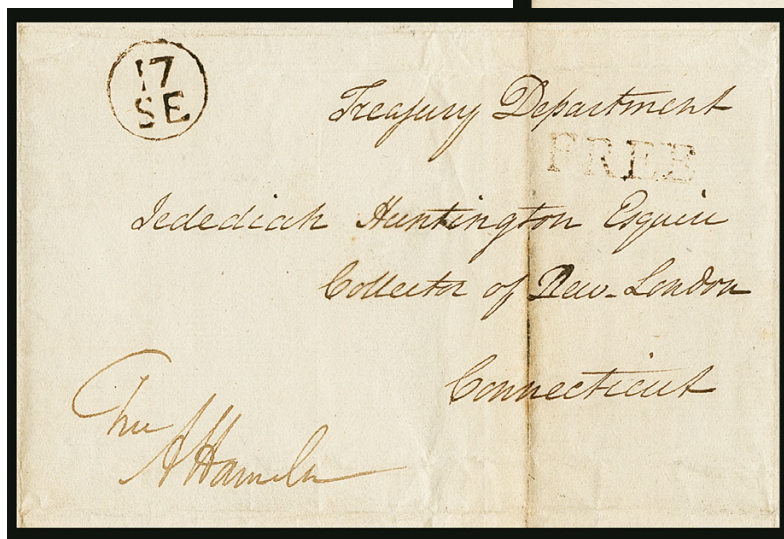 17
SE
Treasury Department
FREE
Jedediah Huntington Esquire
Collector of New-London
Connecticut
Free
A Hamilton